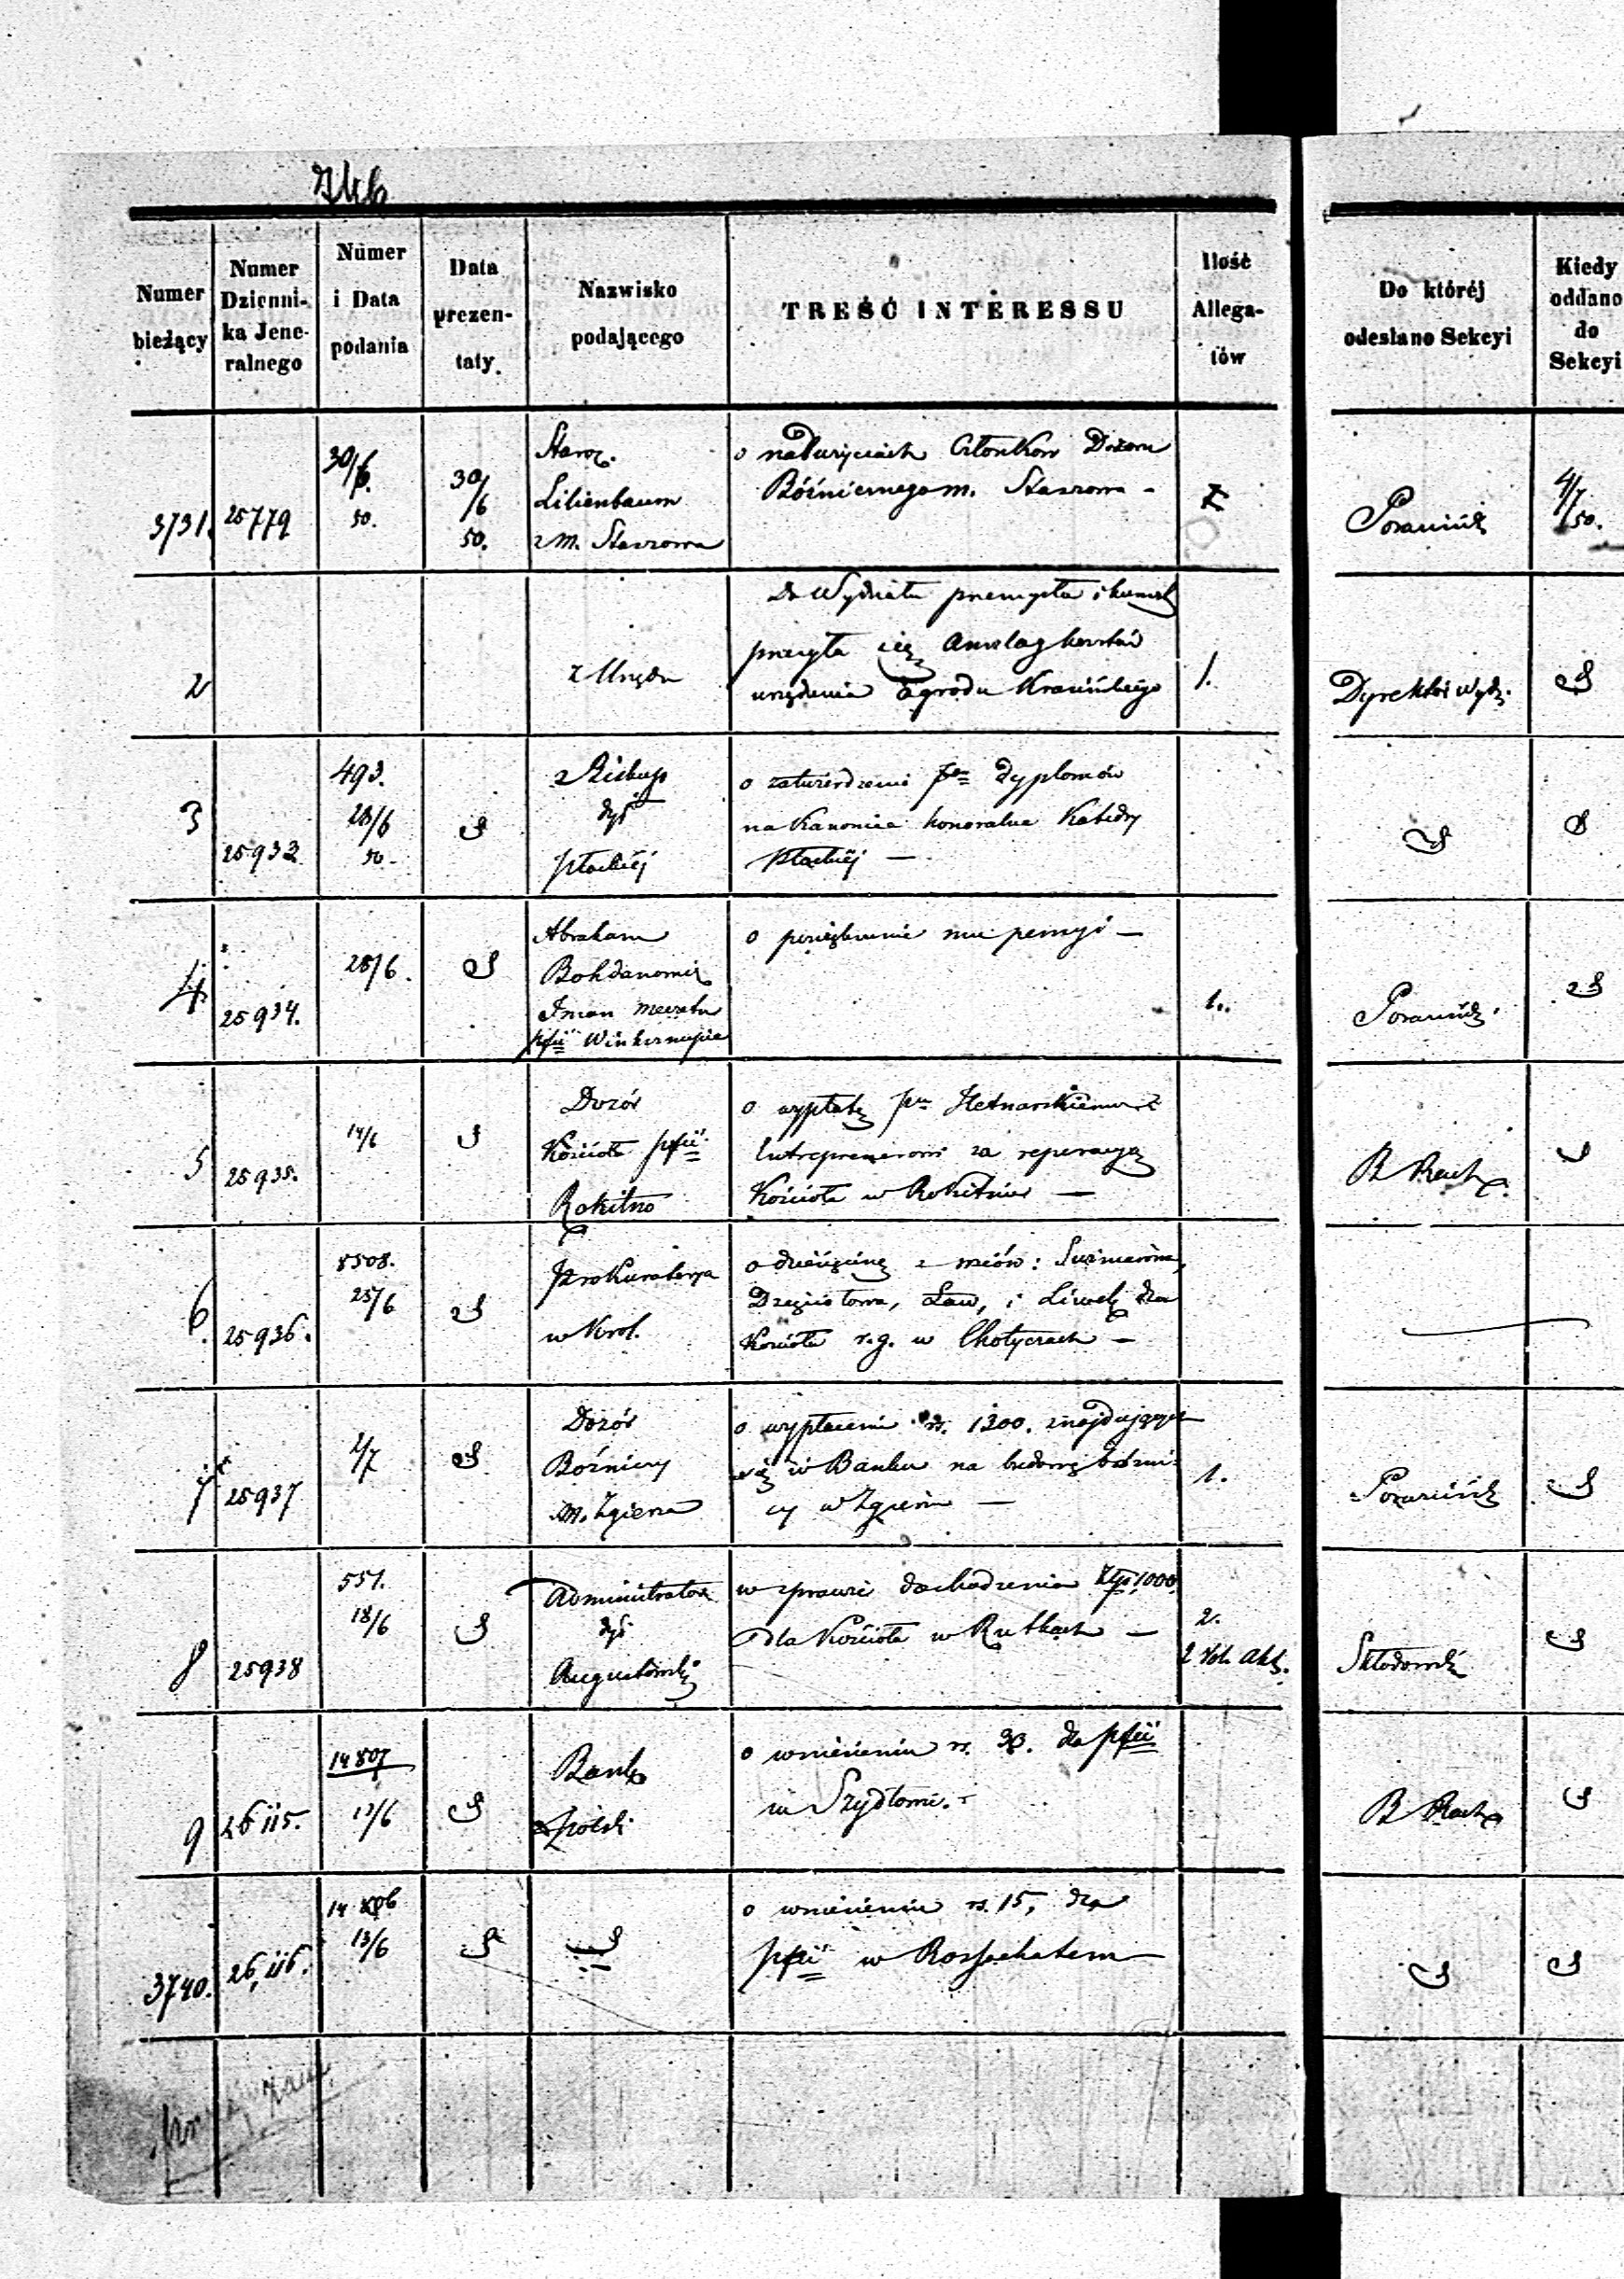 Numer bieżący
Numer Dzienni- ka Jene- ralnego
Numer i Data podania
Data prezen- taty.
Nazwisko podającego
TREŚĆ INTERESSU
Ilość Allega- tów
Do któréj odesłano Sekcyi
Kiedy oddano do Sekcyi
3731.
25779
30/6.
50.
30/6
50.
Staroz.
Lilienbaum
z m. Staszowa
o nadużyciach Członków Dozoru
Bóżnicznego m. Staszowa -
4/7
50.
2
z Urzędu
Do Wydziału przemysłu i
przesyła się anszlag kosztów
urządzenia Ogrodu Krasińskiego
1.
Dyrektor Wydz.
3
25932
493.
28/6
50.
Biskup
dyi
płockiéj
o zatwierdzenie dyplomów
na Kanonie honoralne Katedry
Płockiéj —
4
25934.
28/6.
Abraham
Bohdanowicz
Iman meczetu
pfii Winksznupie
o mu pensyi —
1.
5
25935.
14/6
Dozór
Kościoła pfii
Rokitno
o wypłatę pu Hetnarskiemu
Entreprenerowi za reperacyą
Kościoła w Rokitnie —
B Rach.
6.
25936.
8508.
25/6
Prokuratorya
w Król.
o dziesięcinę z wsiów:
i dla
Kościoła r.g. w Chotyczach —
7
25937
2/7
Dozór
Bóżnicy
m. Zgierza
o wypłacenie rs. 1300. znajdujących
się w Banku na budowę bóźni-
cy w Zgierzu —
1.
8
25938
551.
18/6
Administrator
dyi
Augustowskiéj
w sprawie dochodzenia Złp. 1000.
dla Kościoła w Rutkach —
2.
2 Vol. Akt.
Skłodowski
9
26115.
14807
13/6
Bank
Polski
o wniesieniu rs. 30. dla pfii
w Szydłowie.
B Rach
3740.
26,116.
14806
13/6
o wniesieniu rs. 15, dla
pfii w